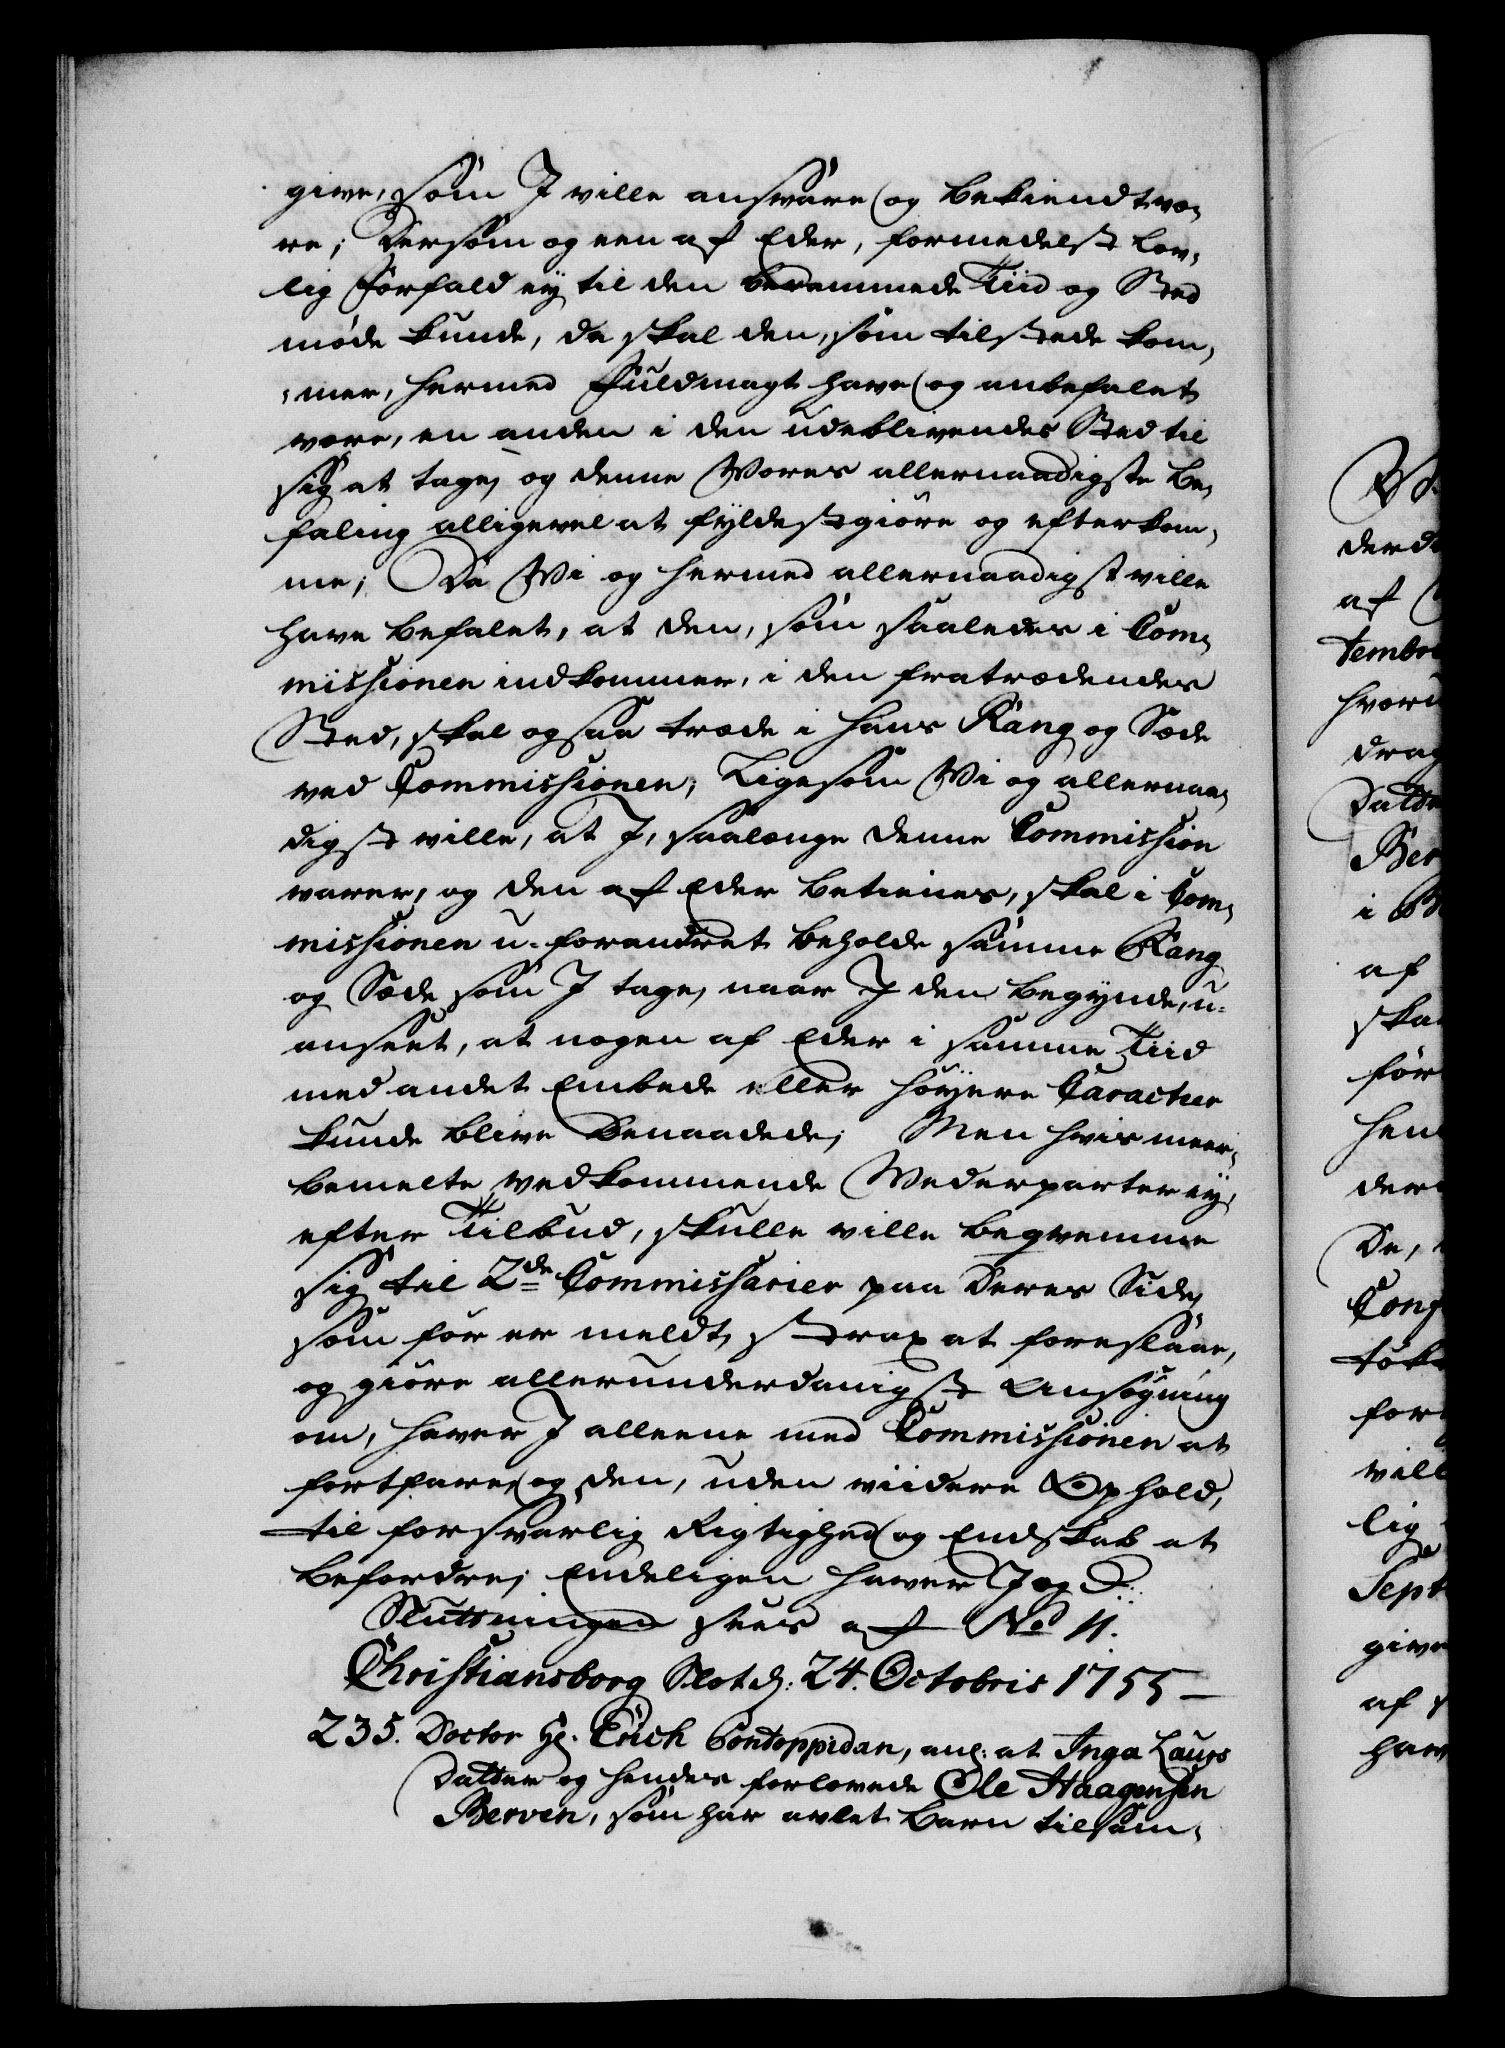 give, som I ville ansvare og bekiendt væ,
re; Dersom og een af Eder, formedelst lov,
lig Forfald ey til den berammede Tiid og Sted
møde kunde, da skal den, som tilstede kom,
,mer, hermed Fuldmagt have og anbefalet
være, en anden i den udeblivendes Sted til
sig at tage, og denne Vores allernaadigste Be,
faling alligevel at fyldestgiöre og efterkom,
me; Da Vi og hermed allernaadigst ville
have befalet, at den, som saaledes i Com,
missionen indkommer, i den fratrædendes
Sted, skal ogsaa træde i hans Rang og Sæde
ved Commissionen; Ligesom Vi og allernaa,
digst ville, at I, saalænge denne Commission
varer, og den af Eder betienes, skal i Com,
missionen u-forandret beholde samme Rang
og Sæde som I tage, naar I den begynde, u-
anseet, at nogen af Eder i samme Tiid
med andet Embede eller höyere Caracteer
kunde blive Benaadede; Men hvis meer,
bemelte vedkommende Vederparter ey,
efter Tilbud, skulle ville beqvemme
sig til 2de Commissarier paa Deres Side,
som før er meldt, strax at foreslaae,
og giöre allerunderdanigst Ansøgning
om, haver I alleene med Commissionen at
fortfare, og den, uden viidere Ophold,
til forsvarlig Rigtighed og Endskab at
befordre; Endeligen haver I og D:
Sluttningen sees af No 11.
Christiansborg Slot d: 24. Octobris 1755 —
235. Doctor Hr. Erich Pontoppidan, anl: at Inga Laurs
Datter og hendes forlovede Ole Haagensen
Berven, som har avlet Barn tilsam,